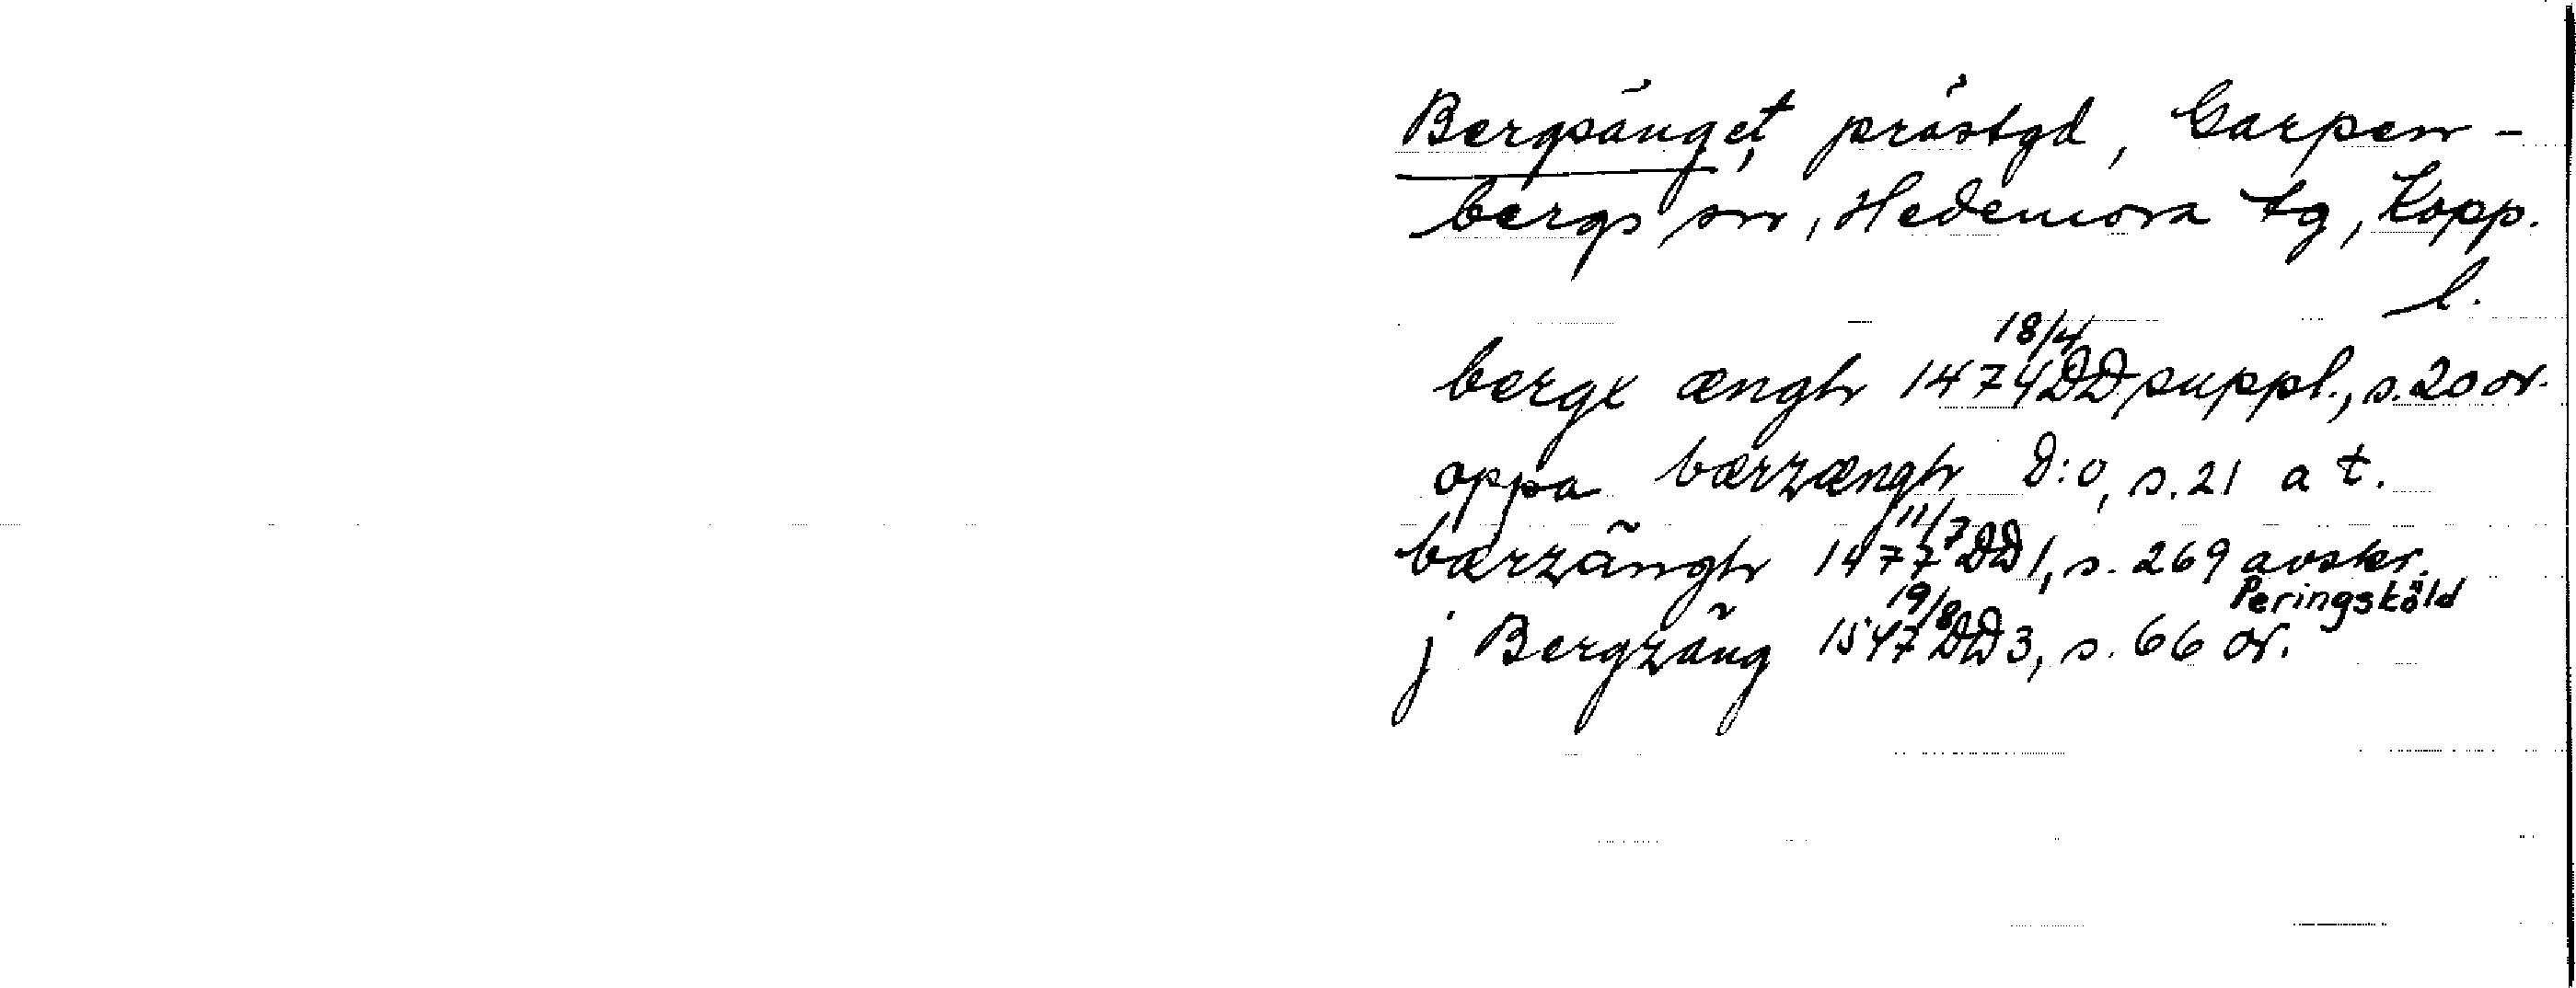 Bergsänget, prästgd, Garpen-
bergs sn, Hedemora tg, Kopp.
l.
bergx ængh 18/4 1474 DD suppl., s. 20 or.
oppa bærzængh D:o, s. 21 a t.
bærzängh 11/7 1477 DD 1, s. 269 avskr.
Peringsköld
j Bergzäng 19/8 1547 DD 3, s. 66 or.